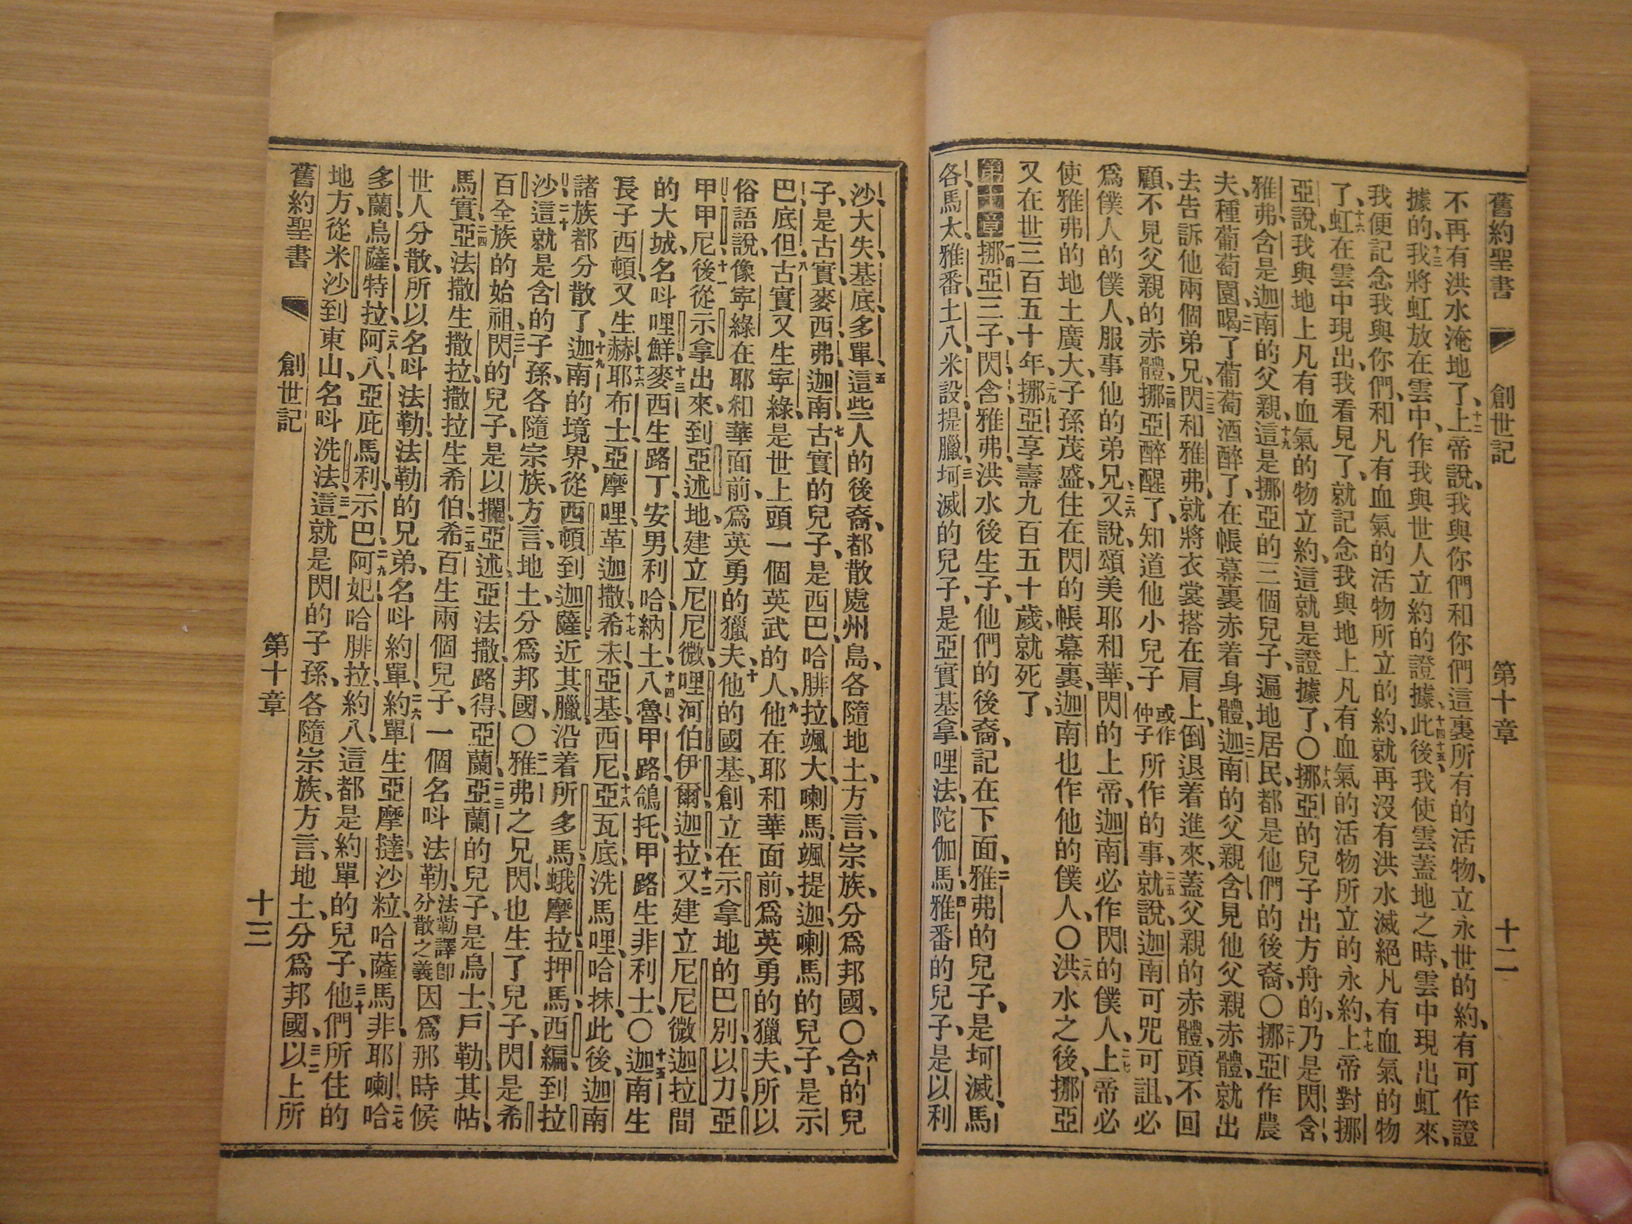 舊約聖書 創世記 第十章 十二
不再有洪水淹地了、十二上帝說、我與你們和你們這裏所有的活物、立永世的約、有可作證
據的、十三我將虹放在雲中、作我與世人立約的證據、十四十五此後我使雲蓋地之時、雲中現出虹來、
我便記念我與你們、和凡有血氣的活物所立的約、就再沒有洪水滅絕凡有血氣的物
了、十六虹在雲中現出、我看見了、就記念我與地上凡有血氣的活物所立的永約、十七上帝對挪
亞說、我與地上凡有血氣的物立約、這就是證據了、〇十八挪亞的兒子出方舟的、乃是閃含
雅弗、含是迦南的父親、十九這是挪亞的三個兒子、遍地居民、都是他們的後裔〇二十挪亞作農
夫、種葡萄園、二一喝了葡萄酒醉了、在帳幕裏赤着身體、二二迦南的父親含見他父親赤體、就出
去告訴他兩個弟兄、二三閃和雅弗就將衣裳搭在肩上、倒退着進來、蓋父親的赤體、頭不回
顧、不見父親的赤體、二四挪亞醉醒了、知道他小兒子或作仲子所作的事、二五就說、迦南可咒可詛、必
爲僕人的僕人、服事他的弟兄、二六又說、頌美耶和華閃的上帝、迦南必作閃的僕人、二七上帝必
使雅弗的地土廣大、子孫茂盛、住在閃的帳幕裏、迦南也作他的僕人、〇二八洪水之後、挪亞
又在世三百五十年、二九挪亞享壽九百五十歲、就死了、
第十章一挪亞三子、閃含雅弗、洪水後生子、他們的後裔、記在下面、二雅弗的兒子、是坷滅、馬
各、馬太、雅番、土八、米設、提臘、三坷滅的兒子、是亞實基拿、哩法、陀伽馬、四雅番的兒子、是以利
沙、大失、基底、多單、五這些人的後裔、都散處州島、各隨地土、方言、宗族、分爲邦國、〇六含的兒
子、是古實、麥西、弗、迦南、七古實的兒子、是西巴、哈腓拉、颯大、喇馬、颯提迦、喇馬的兒子、是示
巴、底但、八古實又生寧綠、寧綠是世上頭一個英武的人、九他在耶和華面前、爲英勇的獵夫、所以
俗語說、像寧綠在耶和華面前、爲英勇的獵夫、十他的國基、創立在示拿地的巴別、以力、亞
甲、甲尼、十一後從示拿出來、到亞述地、建立尼尼微、哩河伯、伊爾、迦拉、十二又建立尼尼微迦拉間
的大城、名呌哩鮮、十三麥西生路丁、安男、利哈、納土八、十四魯甲路、鴿托、甲路生非利士、〇十五迦南生
長子西頓、又生赫、十六耶布士、亞摩哩、革迦撒、十七希未、亞基、西尼、十八亞瓦底、洗馬哩、哈抹、此後迦南
諸族都分散了、十九迦南的境界、從西頓到迦薩、近其臘、沿着所多馬、蛾摩拉、押馬、西編、到拉
沙、二十這就是含的子孫、各隨宗族、方言、地土、分爲邦國、〇二一雅弗之兄閃、也生了兒子、閃是希
百全族的始祖、二二閃的兒子、是以攔、亞述、亞法撒、路得、亞蘭、二三亞蘭的兒子、是烏士、戶勒、其帖、
馬實、二四亞法撒生撒拉、撒拉生希伯、二五希百生兩個兒子、一個名呌法勒、法勒譯卽分散之義因爲那時候
世人分散、所以名呌法勒、法勒的兄弟、名呌約單、二六約單生亞摩撻、沙粒、哈薩馬非、耶喇、二七哈
多蘭、烏薩、特拉、二八阿八、亞庇馬利、示巴、二九阿妃、哈腓拉、約八、這都是約單的兒子、三十他們所住的
地方、從米沙到東山、名呌洗法、三一這就是閃的子孫、各隨宗族、方言、地土、分爲邦國、三二以上所
舊約聖書 創世記 第十章 十三